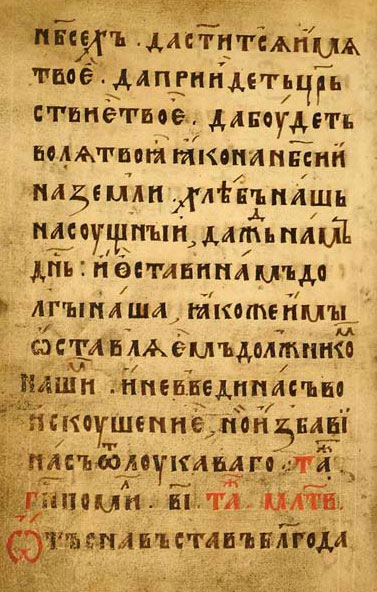 нбсехъ · даститсѧ имѧ
твоѥ · даприидеть црь
ствиѥтвоѥ · дабоудеть
волѧтвоꙗ ꙗконанбсии
наземли · хлѣбънашь
насоущныи, даждьнамъ
днь · иѡставинамъдо
лгынаша, ꙗкожеимы
ѡставлѧѥмъдолжнико
нашим · иневвединасъво
искоушение, ноизбави
насъѿлоукаваго · таж
ги помі ві таж млтв
ѿъснавъставъблгода